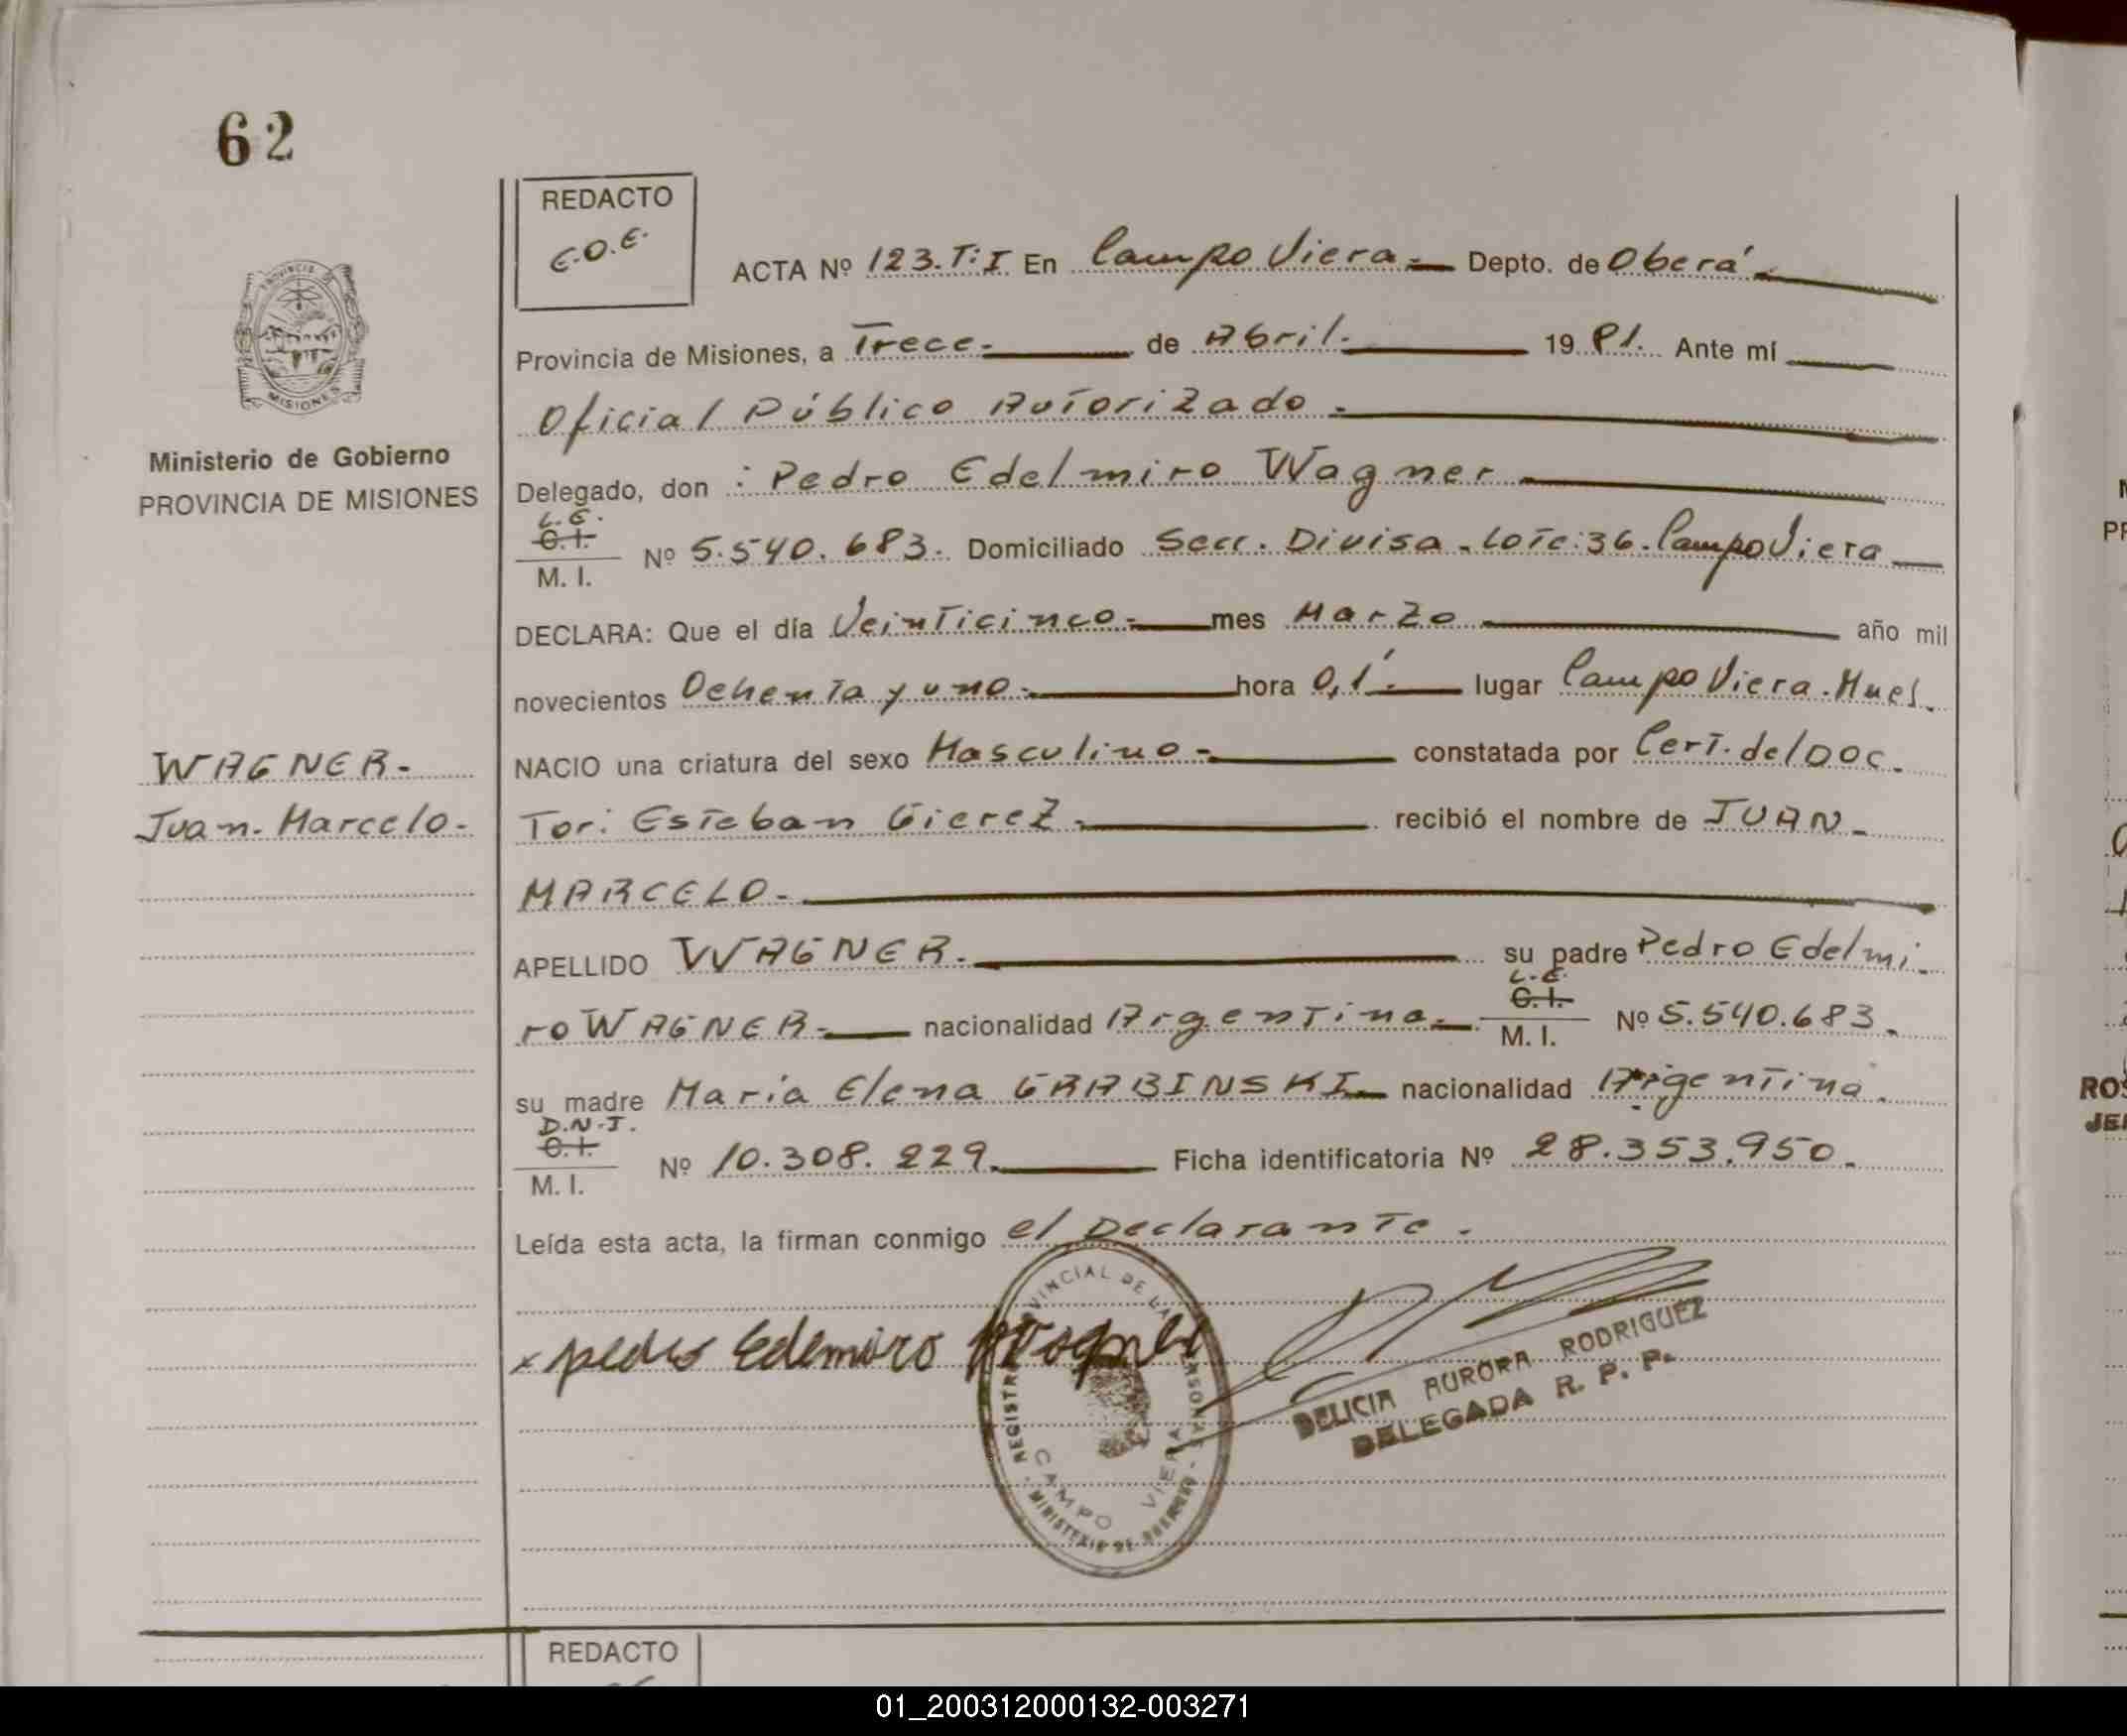 62
REDACTO
E.O.E.
ACTA Nº 123.T:I En Campo Viera.- Depto. de Oberá.-
PROVINCIA DE MISIONES
Provincia de Misiones, a Trece.- de Abril.- 19 81. Ante mí
Oficial Público Autorizado.-
Ministerio de Gobierno
PROVINCIA DE MISIONES
Delegado, don : Pedro Edelmiro Wagner
L.E.
C.I.
M. I.
Nº 5.540.683. Domiciliado Secc. Divisa. Lote:36. Campo Viera
DECLARA: Que el día Veinticinco.- mes Marzo año mil
novecientos Ochenta y uno.- hora 0,1'.- lugar Campo Viera.
WAGNER.-
Juan. Marcelo.-
NACIO una criatura del sexo Masculino.- constatada por Cert. del DOC.
Tor: Esteban recibió el nombre de JUAN-
MARCELO.-
APELLIDO WAGNER.- su padre Pedro Edelmi-
ro WAGNER.- nacionalidad Argentina.-
L.E.
C.I.
M. I.
Nº 5.540.683.
su madre María Elena GRABINSKI- nacionalidad Argentina.
D.N.I.
C.I.
M. I.
Nº 10.308.229. Ficha identificatoria Nº 28.353.950.-
Leída esta acta, la firman conmigo el Declarante.
x pedro Edemiro Wagner
REGISTRO PROVINCIAL DE LAS PERSONAS
CAMPO VIERA
MINISTERIO DE GOBIERNO
DELICIA AURORA RODRIGUEZ
DELEGADA R. P. P.
REDACTO
ROS
JEF
01_200312000132-003271